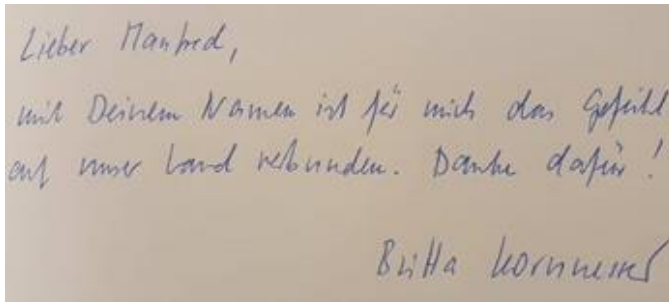 Lieber Manfred,
mit Deinem Namen ist für mich das Gefühl
auf unser Land verbunden. Danke dafür!
Britta Kornmesser